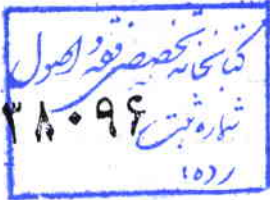 کتابخانه تخصصی فقه و اصول
شماره ثبت ۳۸۰۹۶
رده: